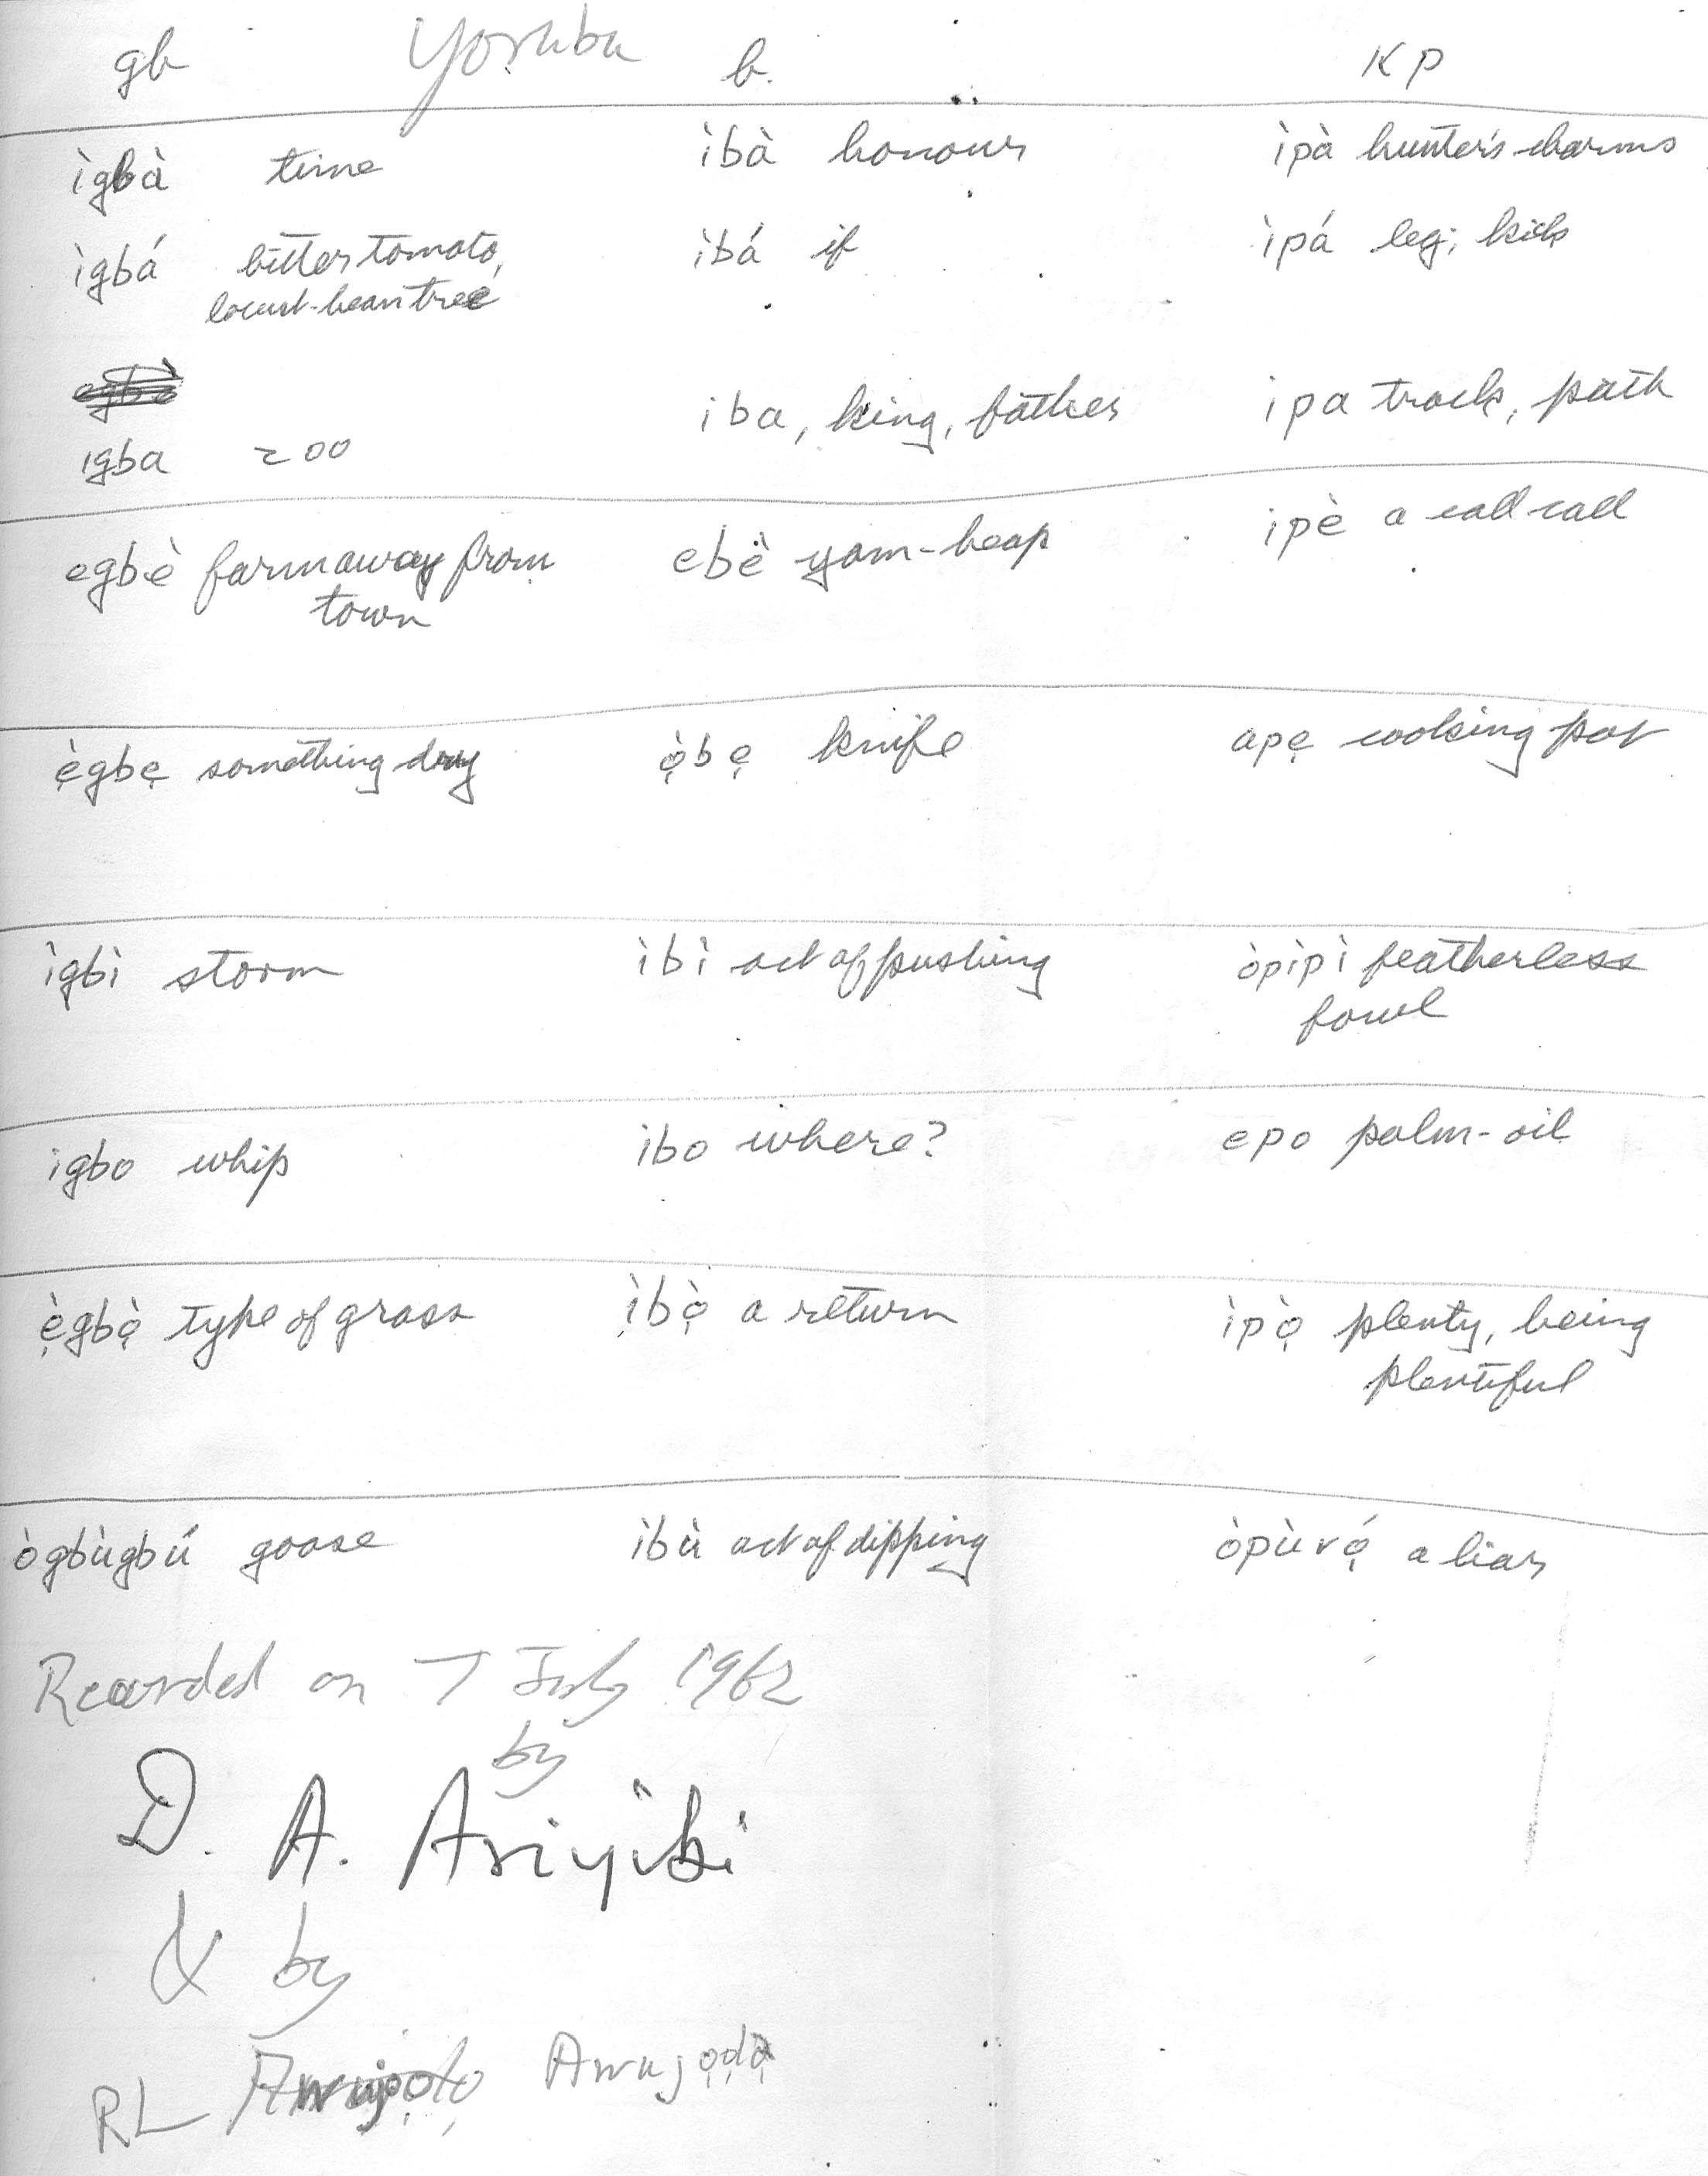 gb Yoruba b. KP
ìgbà time ìbà honour ìpà hunter's charms
ìgbá bitter tomato, ìbá if ìpá leg; kick
locust-bean tree
iba, king, father ipa track, path
igba 200
ipè a call call
egbè farm away from ebè yam-heap
town
ẹ̀gbẹ something dry ọ̀bẹ knife apẹ cooking pot
ìgbì storm ìbì act of pushing òpìpì featherless
fowl
igbo whip ibo where? epo palm-oil
ẹ̀gbọ̀ type of grass ìbọ̀ a return ìpọ̀ plenty, being
plentiful
ògbùgbú goose ìbù act of dipping òpùrọ́ a liar
Recorded on 7 July 1962
by
D. A. Ariyibi
& by
RL Awujọdọ Awujọdọ̀